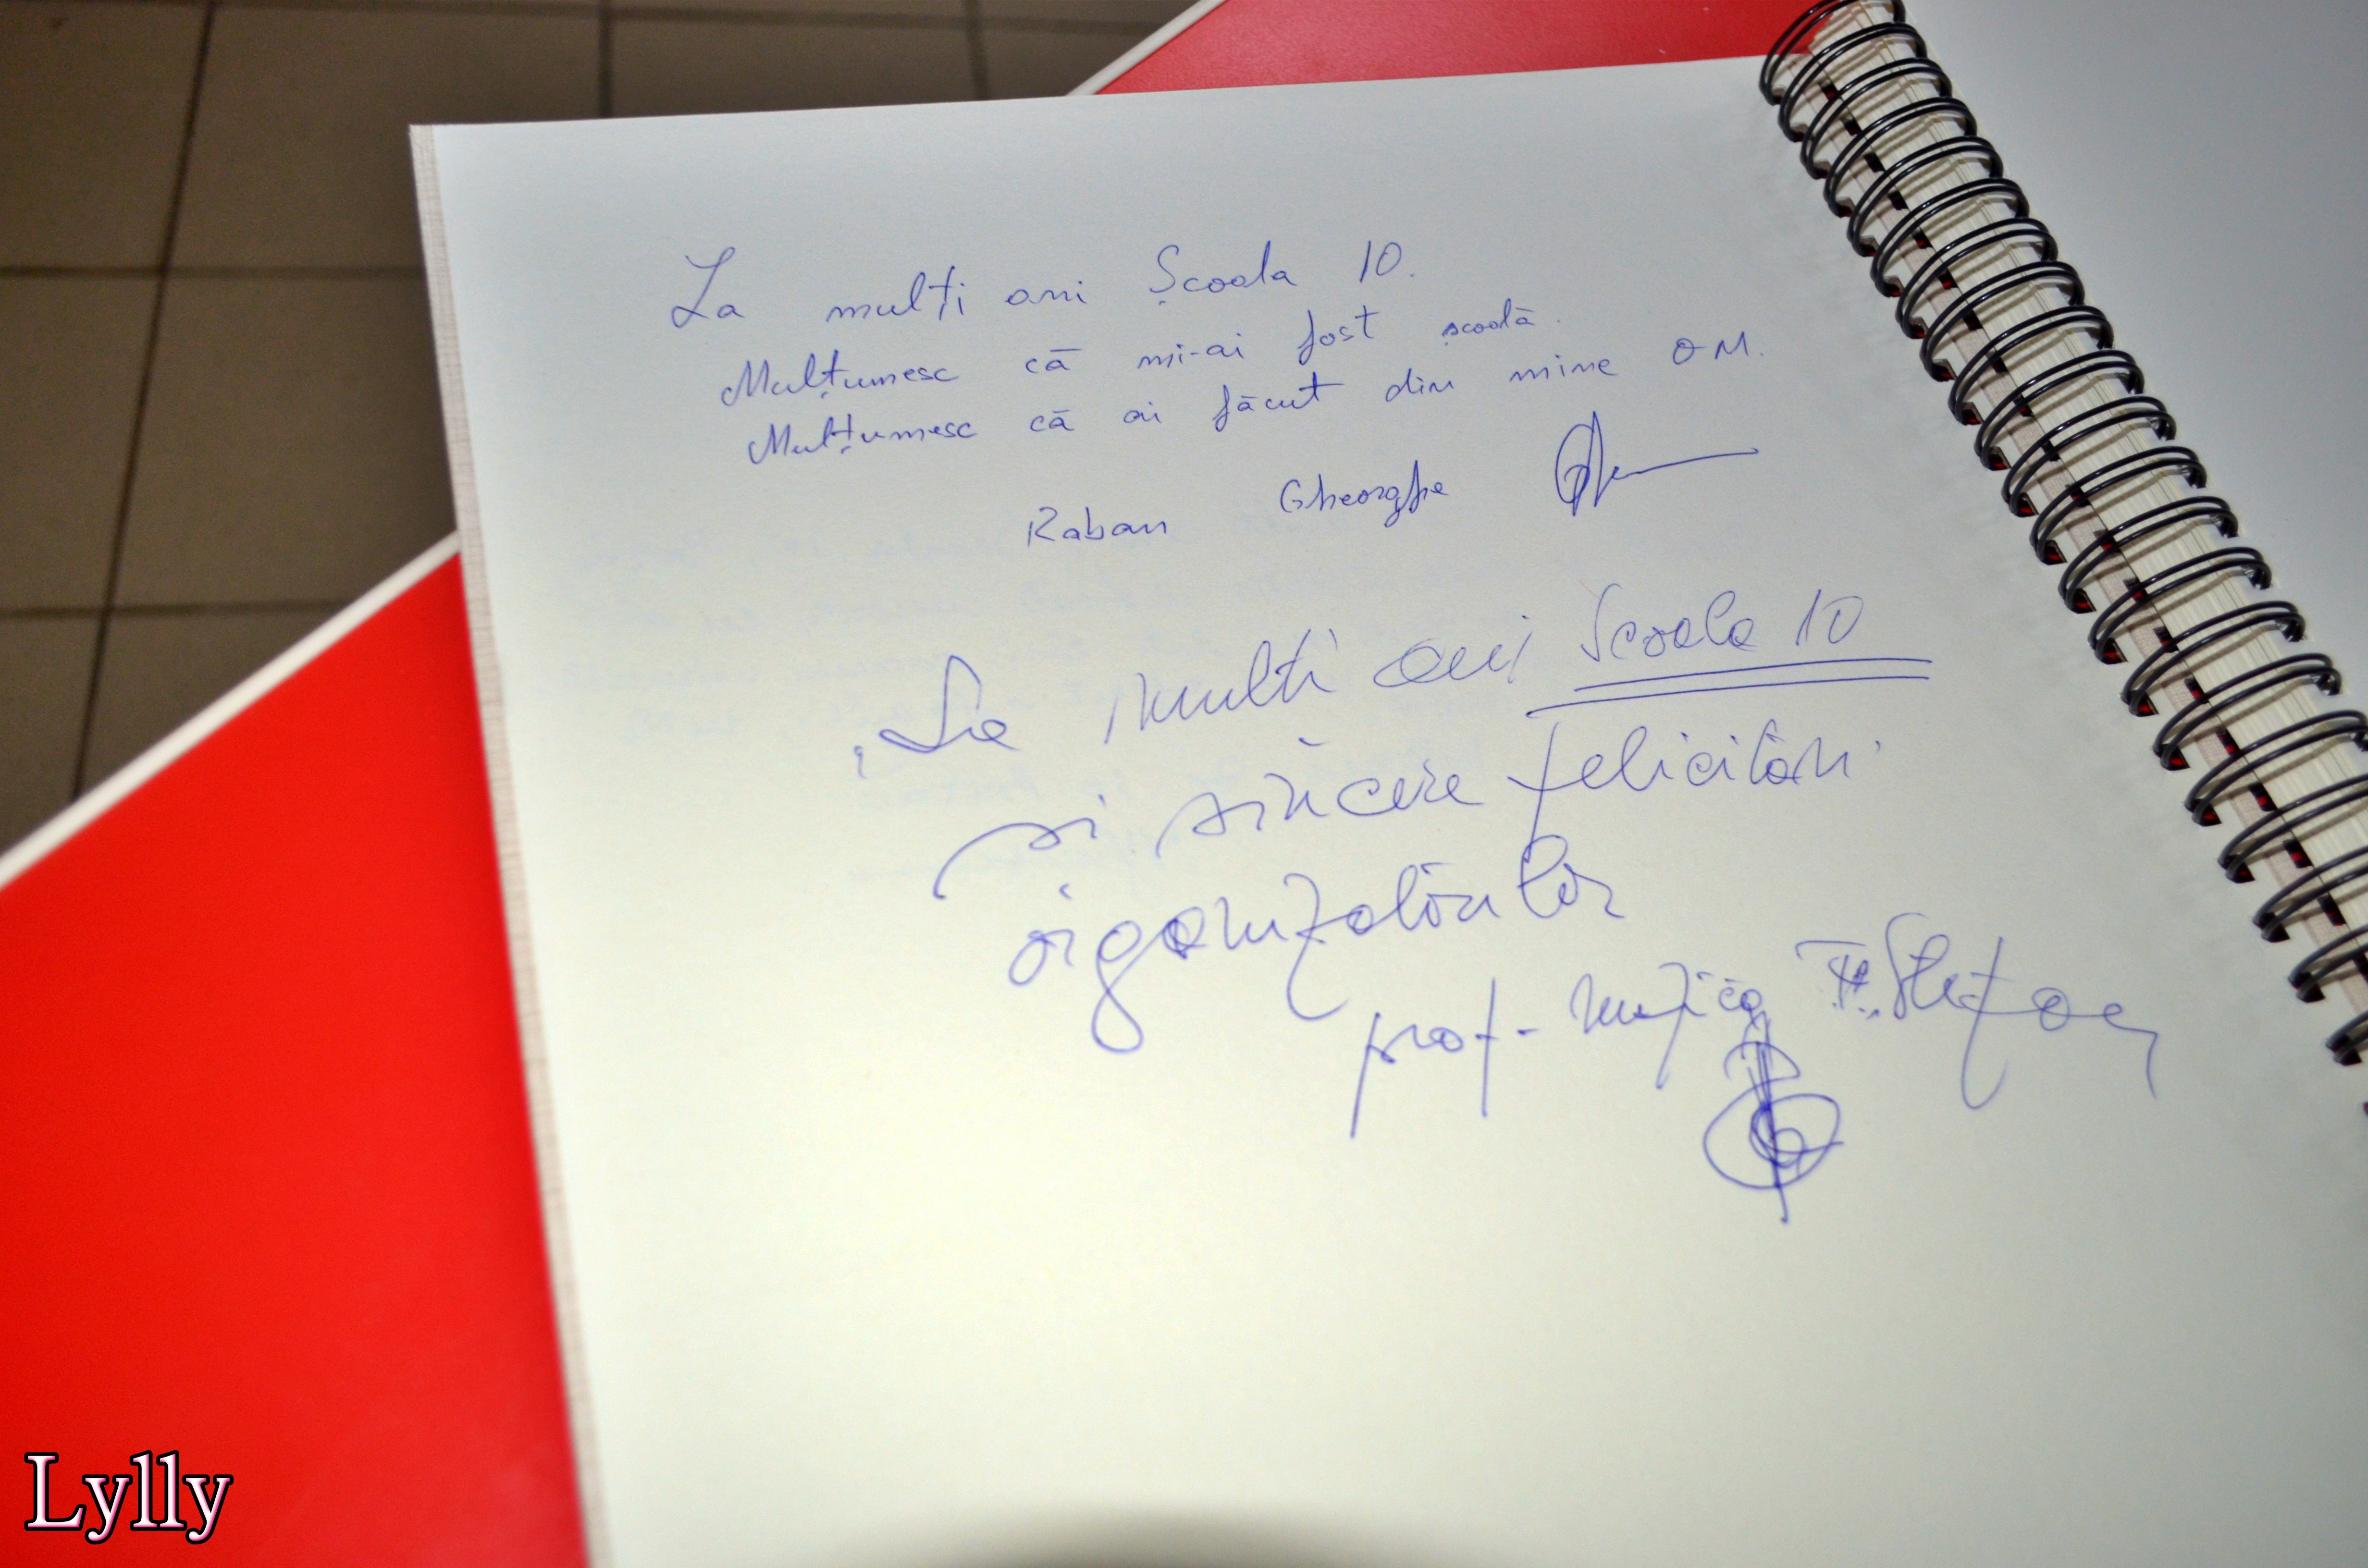 La mulți ani Școala 10.
Mulțumesc că mi-ai fost școală.
Mulțumesc că ai făcut din mine OM.
Raban Gheorghe
La multi ani Scoala 10
si sincere felicitări
organizatorilor
prof. muzica Stefan
Lylly